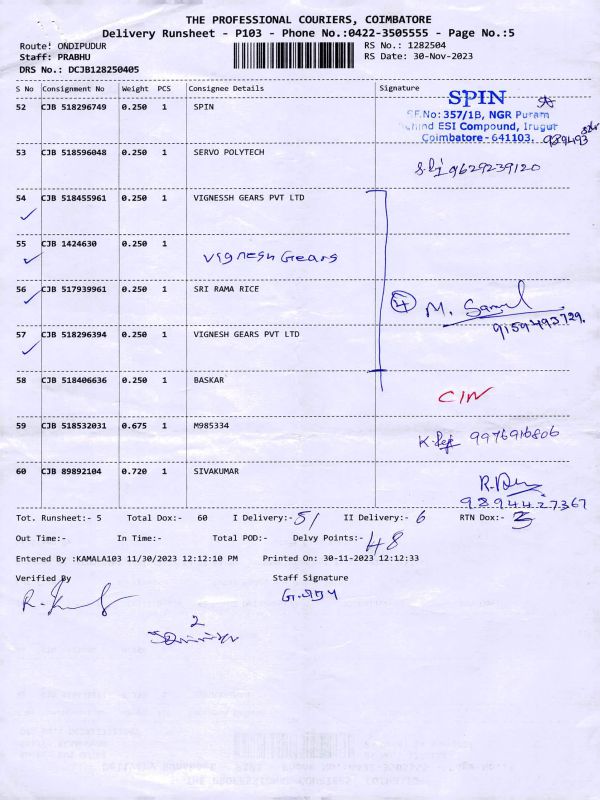 THE PROFESSIONAL COURIERS, COIMBATORE
Delivery Runsheet - P103 - Phone No.:0422-3505555 - Page No.:5
Route! ONDIPUDUR
RS No.: 1282504
Staff: PRABHU
RS Date: 30-Nov-2023
DRS No.: DCJB128250405
S No Consignment No Weight PCS Consignee Details Signature
52 CJB 518296749 0.250 1 SPIN
SPIN
SF.No: 357/1B, NGR Puram
Behind ESI Compound, Irugur
Coimbatore - 641103.
53 CJB 518596048 0.250 1 SERVO POLYTECH
9629239120
54 CJB 518455961 0.250 1 VIGNESSH GEARS PVT LTD
55 CJB 1424630 0.250 1
Vignesh Gears
56 CJB 517939961 0.250 1 SRI RAMA RICE
4 M.
9159493729.
57 CJB 518296394 0.250 1 VIGNESH GEARS PVT LTD
58 CJB 518406636 0.250 1 BASKAR
C/N
59 CJB 518532031 0.675 1 M985334
9976916806
60 CJB 89892104 0.720 1 SIVAKUMAR
9894427367
Tot. Runsheet:- 5 Total Dox:- 60 I Delivery:- 51 II Delivery:- 6 RTN Dox:- 3
Out Time:- In Time:- Total POD:- Delvy Points:- 48
Entered By :KAMALA103 11/30/2023 12:12:10 PM Printed On: 30-11-2023 12:12:33
Verified By Staff Signature
2